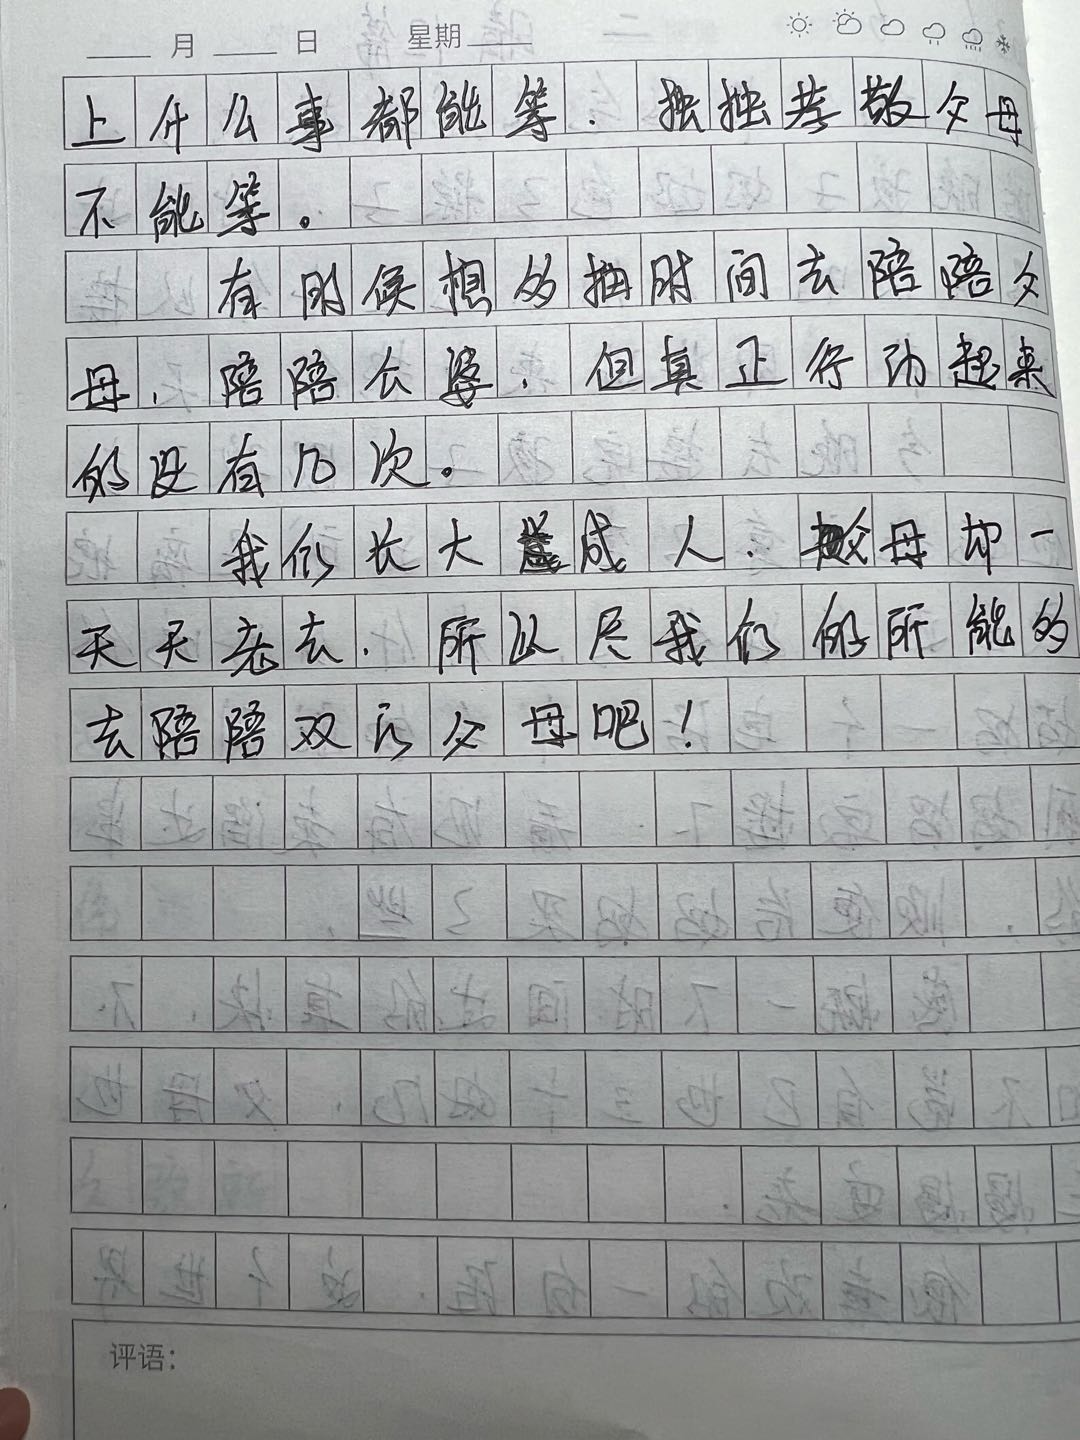 月 日 星期
上什么事都能等.独独孝敬父母
不能等。
有时候想的抽时间去陪陪父
母.陪陪公婆.但真正行动起来
的没有几次。
我们长大成人.父母却一
天天老去.所以尽我们的所能的
去陪陪双方父母吧!
评语: